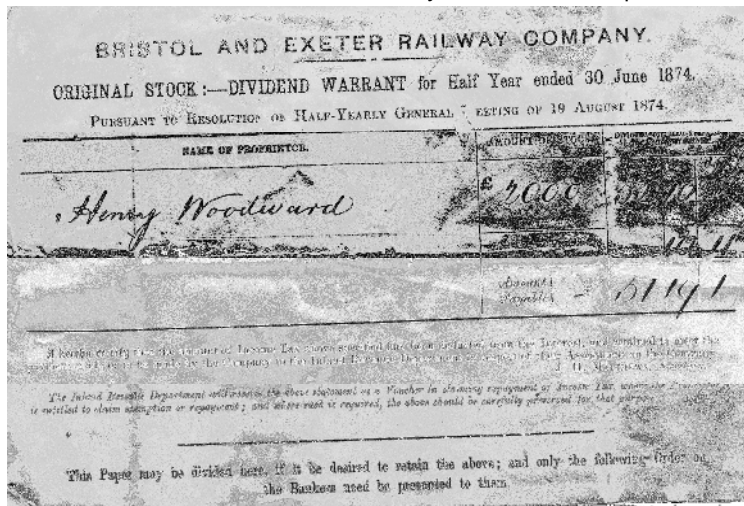 BRISTOL AND EXETER RAILWAY COMPANY.
ORIGINAL STOCK:—DIVIDEND WARRANT for Half Year ended 30 June 1874.
PURSUANT TO RESOLUTION OF HALF-YEARLY GENERAL MEETING OF 19 AUGUST 1874.
NAME OF PROPRIETOR. AMOUNT OF STOCK
Henry Woodward £ 2000
Amount
Payable 51 19 1
I hereby certify that the amount of Income Tax shown
by the Company to the Inland Revenue Department
The Inland Revenue Department will receive the above statement as a Voucher in claiming repayment of Income Tax where the Proprietor
is entitled to claim exemption or repayment; and where such is required, the above should be carefully preserved for that purpose.
This Paper may be divided here, if it be desired to retain the above; and only the following Order on
the Bankers need be presented to them